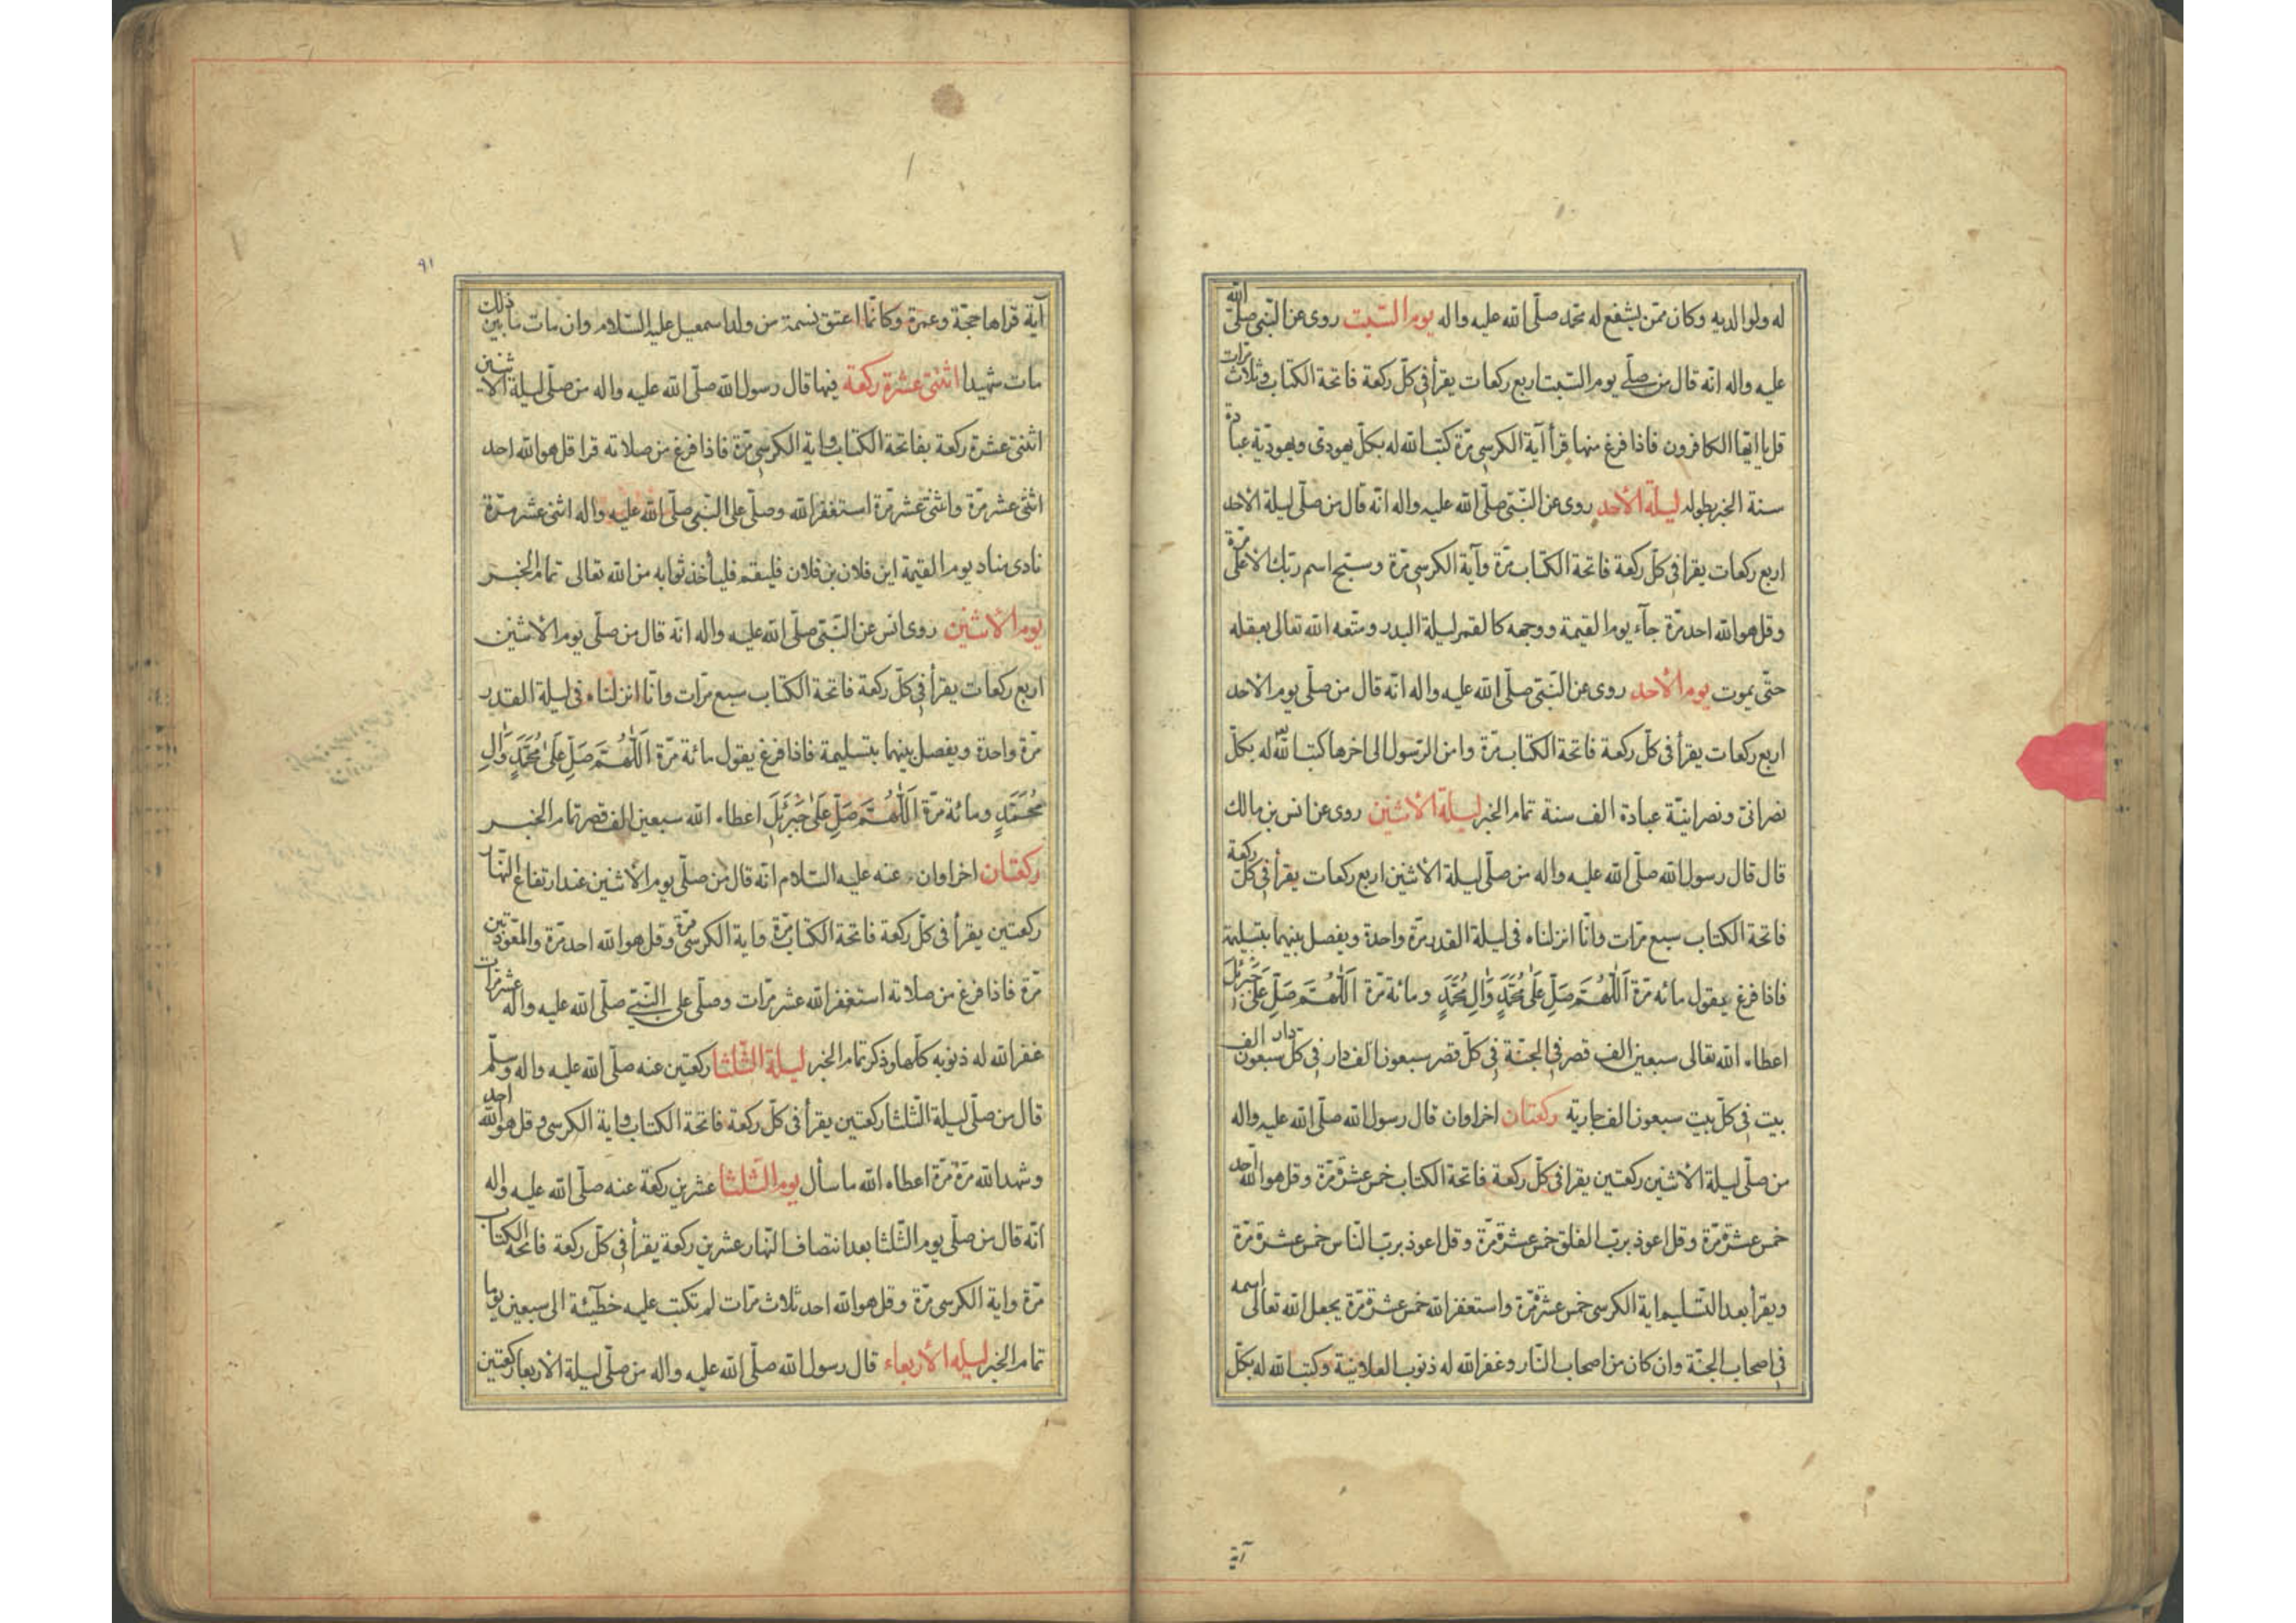 له ولوالديه وكان ممّن يشفع له محمّد صلّى الله عليه واله يوم السّبت روى عن النّبى صلّى الله
عليه واله انّه قال من صلّى يوم السّبت اربع ركعات يقرأ فى كلّ ركعة فاتحة الكتاب وثلاث مرّات
قل يا ايّها الكافرون فاذا فرغ منها قرأ آية الكرسى مرّة كتب الله له بكلّ يهودى ويهوديّة عبادة
سنة الخبر بطوله ليلة الأحد روى عن النّبى صلّى الله عليه واله انّه قال من صلّى ليلة الاحد
اربع ركعات يقرا فى كلّ ركعة فاتحة الكتاب مرّة وآية الكرسى مرّة وسبّح اسم ربّك الاعلى مرّة
وقل هو الله احد مرّة جآء يوم القيمة ووجهه كالقمر ليلة البدر ومتّعه الله تعالى بعقله
حتّى يموت يوم الأحد روى عن النّبى صلّى الله عليه واله انّه قال من صلّى يوم الاحد
اربع ركعات يقرأ فى كلّ ركعة فاتحة الكتاب مرّة وامن الرّسول الى اخرها كتب الله له بكلّ
نصرانىّ ونصرانيّة عبادة الف سنة تمام الخبر ليلة الاثنين روى عن انس بن مالك
قال قال رسول الله صلّى الله عليه واله من صلّى ليلة الاثنين اربع ركعات يقرأ فى كلّ ركعة
فاتحة الكتاب سبع مرّات وانّا انزلناه فى ليلة القدر مرّة واحدة ويفصل بينهما بتسليمة
فاذا فرغ يقول مائه مرّة اَللّهُمَّ صَلِّ عَلىٰ مُحَمَّدٍ وَّالِ مُحَمَّدٍ ومائة مرّة اَللّهُمَّ صَلِّ عَلىٰ جَبْرَئِلَ
اعطاه الله تعالى سبعين الف قصر فى الجنّة فى كلّ قصر سبعون الف دار فى كلّ دار سبعون الف
بيت فى كلّ بيت سبعون الف جارية ركعتان اخراوان قال رسول الله صلّى الله عليه واله
من صلّى ليلة الاثنين ركعتين يقرا فى كلّ ركعة فاتحة الكتاب خمس عشرة مرّة وقل هو الله احد
خمس عشرة مرّة وقل اعوذ بربّ الفلق خمس عشرة مرّة وقل اعوذ بربّ النّاس خمس عشرة مرّة
ويقرأ بعد التّسليم اية الكرسى خمس عشرة مرّة واستغفر الله خمس عشرة مرّة يجعل الله تعالى اسمه
فى اصحاب الجنّة وان كان من اصحاب النّار وغفر الله له ذنوب العلانية وكتب الله له بكلّ
آية
٩١
آية قراها حجّة وعمرة وكانّما اعتق نسمة من ولد اسمعيل عليه السّلام وان مات ما بين ذلك
مات شهيدا اثنتى عشرة ركعة فيها قال رسول الله صلّى الله عليه واله من صلّى ليلة الاثنين
اثنتى عشرة ركعة بفاتحة الكتاب واية الكرسى مرّة فاذا فرغ من صلاته قرا قل هو الله احد
اثنتى عشر مرّة واثنتى عشر مرّة استغفر الله وصلّى على النّبى صلّى الله عليه واله اثنى عشر مرّة
نادى مناد يوم القيمة اين فلان بن فلان فليقم فليأخذ ثوابه من الله تعالى تمام الخبر
يوم الاثنين روى انس عن النّبى صلّى الله عليه واله انّه قال من صلّى يوم الاثنين
اربع ركعات يقرأ فى كلّ ركعة فاتحة الكتاب سبع مرّات وانّا انزلناه فى ليلة القدر
مرّة واحدة ويفصل بينهما بتسليمة فاذا فرغ يقول مائة مرّة اَللّهُمَّ صَلِّ عَلىٰ مُحَمَّدٍ وَّالِ
مُحَمَّدٍ ومائة مرّة اَللّهُمَّ صَلِّ عَلىٰ جَبْرَئِلَ اعطاه الله سبعين الف قصر تمام الخبر
ركعتان اخراوان عنه عليه السّلام انّه قال من صلّى يوم الاثنين عند ارتفاع النّهار
ركعتين يقرأ فى كلّ ركعة فاتحة الكتاب مرّة واية الكرسى مرّة وقل هو الله احد مرّة والمعوّذتين
مرّة فاذا فرغ من صلاته استغفر الله عشر مرّات وصلّى على النّبى صلّى الله عليه واله عشر مرّات
غفر الله له ذنوبه كلّها وذكر تمام الخبر ليلة الثّلثا ركعتين عنه صلّى الله عليه واله وسلّم
قال من صلّى ليلة الثّلثا ركعتين يقرأ فى كلّ ركعة فاتحة الكتاب واية الكرسى وقل هو الله احد
وشهد الله مرّة مرّة اعطاه الله ما سأل يوم الثّلثا عشرين ركعة عنه صلّى الله عليه واله
انّه قال من صلّى يوم الثّلثا بعد انتصاف النّهار عشرين ركعة يقرأ فى كلّ ركعة فاتحة الكتاب
مرّة واية الكرسى مرّة وقل هو الله احد ثلاث مرّات لم تكتب عليه خطيئة الى سبعين يوما
تمام الخبر ليلة الأربعاء قال رسول الله صلّى الله عليه واله من صلّى ليلة الاربعا ركعتين